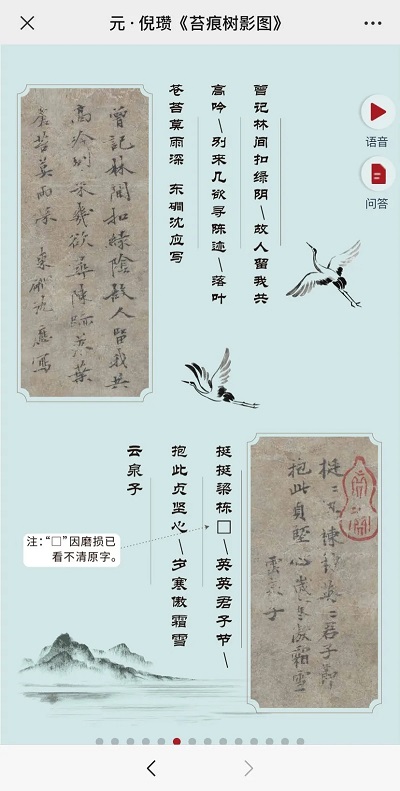 元 · 倪瓒《苔痕树影图》
曾记林间扣绿阴—故人留我共
高吟—别来几欲寻陈迹—落叶
苍苔莫雨深 东磵沈应写
语音
问答
曾記林間扣綠陰故人留我共
高吟別來幾欲尋陳跡落葉
蒼苔莫雨深 東磵沈應寫
挺挺梁栋□—英英君子节—
抱此贞坚心—岁寒傲霜雪
云泉子
注:“□”因磨损已
看不清原字。
挺挺梁棟 英英君子節
抱此貞堅心歲寒傲霜雪
雲泉子